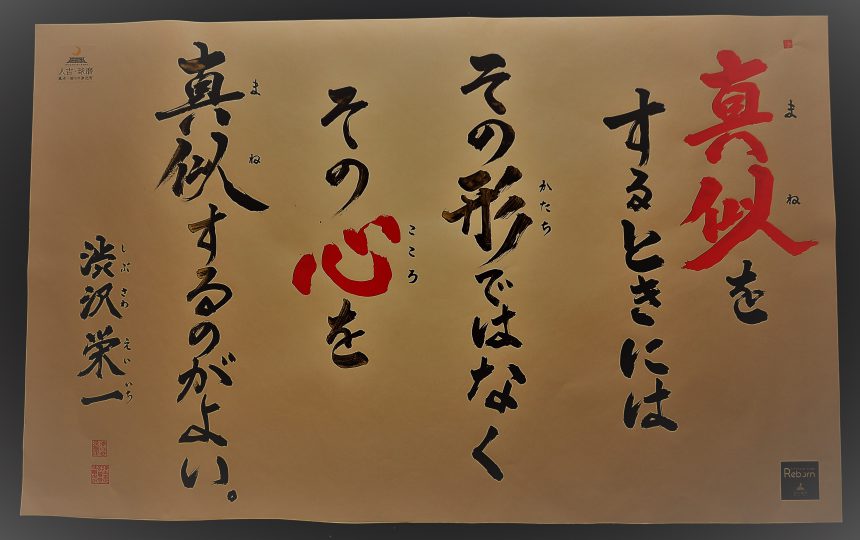 真似を
まね
するときには
その形ではなく
かたち
その心を
こころ
真似するのがよい。
まね
渋沢栄一
しぶさわえいいち
人吉・球磨
Reborn